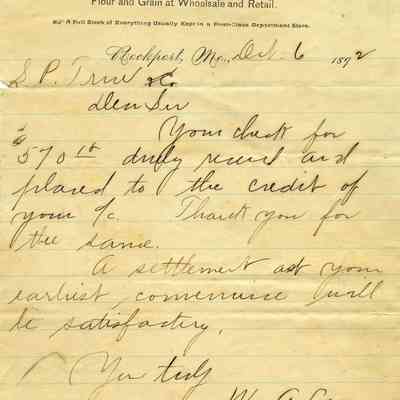 Flour and Grain at Wholesale and Retail.
A Full Stock of Everything Usually Kept in a First-Class Department Store.
Rockport, Mo., Oct. 6 1892
S. P. True & Co
Dear Sir
Your check for
$570 10 duly received and
placed to the credit of
your a/c. Thank you for
the same.
A settlement at your
earliest convenience will
be satisfactory.
Yours truly